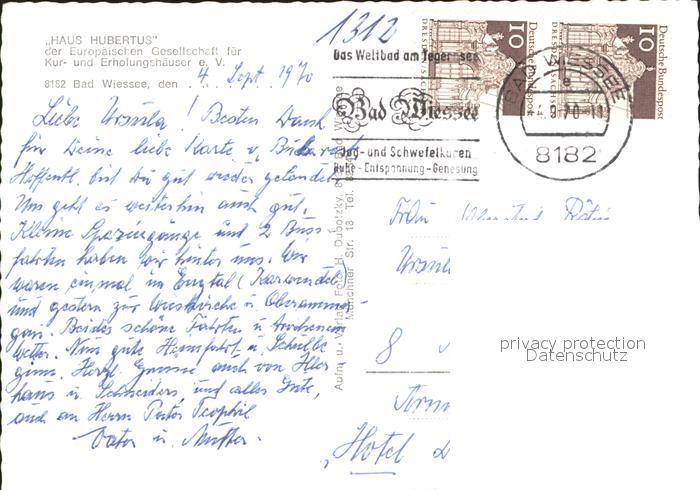 „HAUS HUBERTUS"
der Europäischen Gesellschaft für
Kur- und Erholungshäuser e. V.
8182 Bad Wiessee, den 4. Sept. 1970
Liebe Ursula! Besten Dank
für Deine liebe Karte v.
Hoffentl. bist Du gut wieder gelandet
Uns geht es weiterhin auch gut.
Kleine Spaziergänge und 2 Bus-
fahrten haben wir hinter uns. Wir
waren einmal im Engtal (Karwendel)
und gestern zur Wieskirche u Oberammer-
gau. Beides schöne Fahrten u
Wetter. Nun gute Heimfahrt u Schulbe-
ginn. Herzl. Grüsse auch von
haus u. Schneiders, und alles Gute,
auch an Herrn Pater Teophil
Vater u. Mutter.
1312
Das Weltbad am Tegernsee
Bad Wiessee
Jod- und Schwefelkuren
Ruhe-Entspannung-Genesung
BAD WIESSEE
8182
10
DRESDEN
Deutsche Bundespost
10
DRESDEN
Deutsche Bundespost
Aufn. u. Verlag: Foto H. Dubotzky, Bad Wiessee
Münchner Str. 18 Tel.
Frau
8
„Hotel
privacy protection
Datenschutz